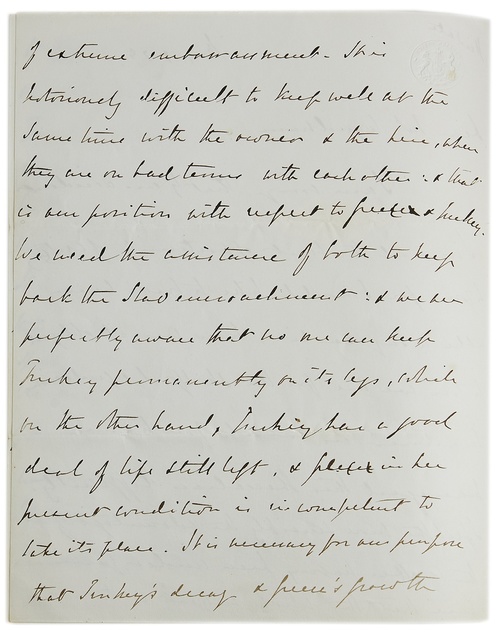 of extreme embarrassment - It is
notoriously difficult to keep well at the
same time with the owner & the heir, when
they are on bad terms with each other : & that
is our position with respect to Greece & Turkey.
We need the assistance of both to keep
back the Slav encroachment : & we are
perfectly aware that no one can keep
Turkey permanently on its legs, while
on the other hand, Turkey has a good
deal of life still left, & Greece in her
present condition is incompetent to
take its place. It is necessary for our purpose
that Turkey's decay & Greece's growth